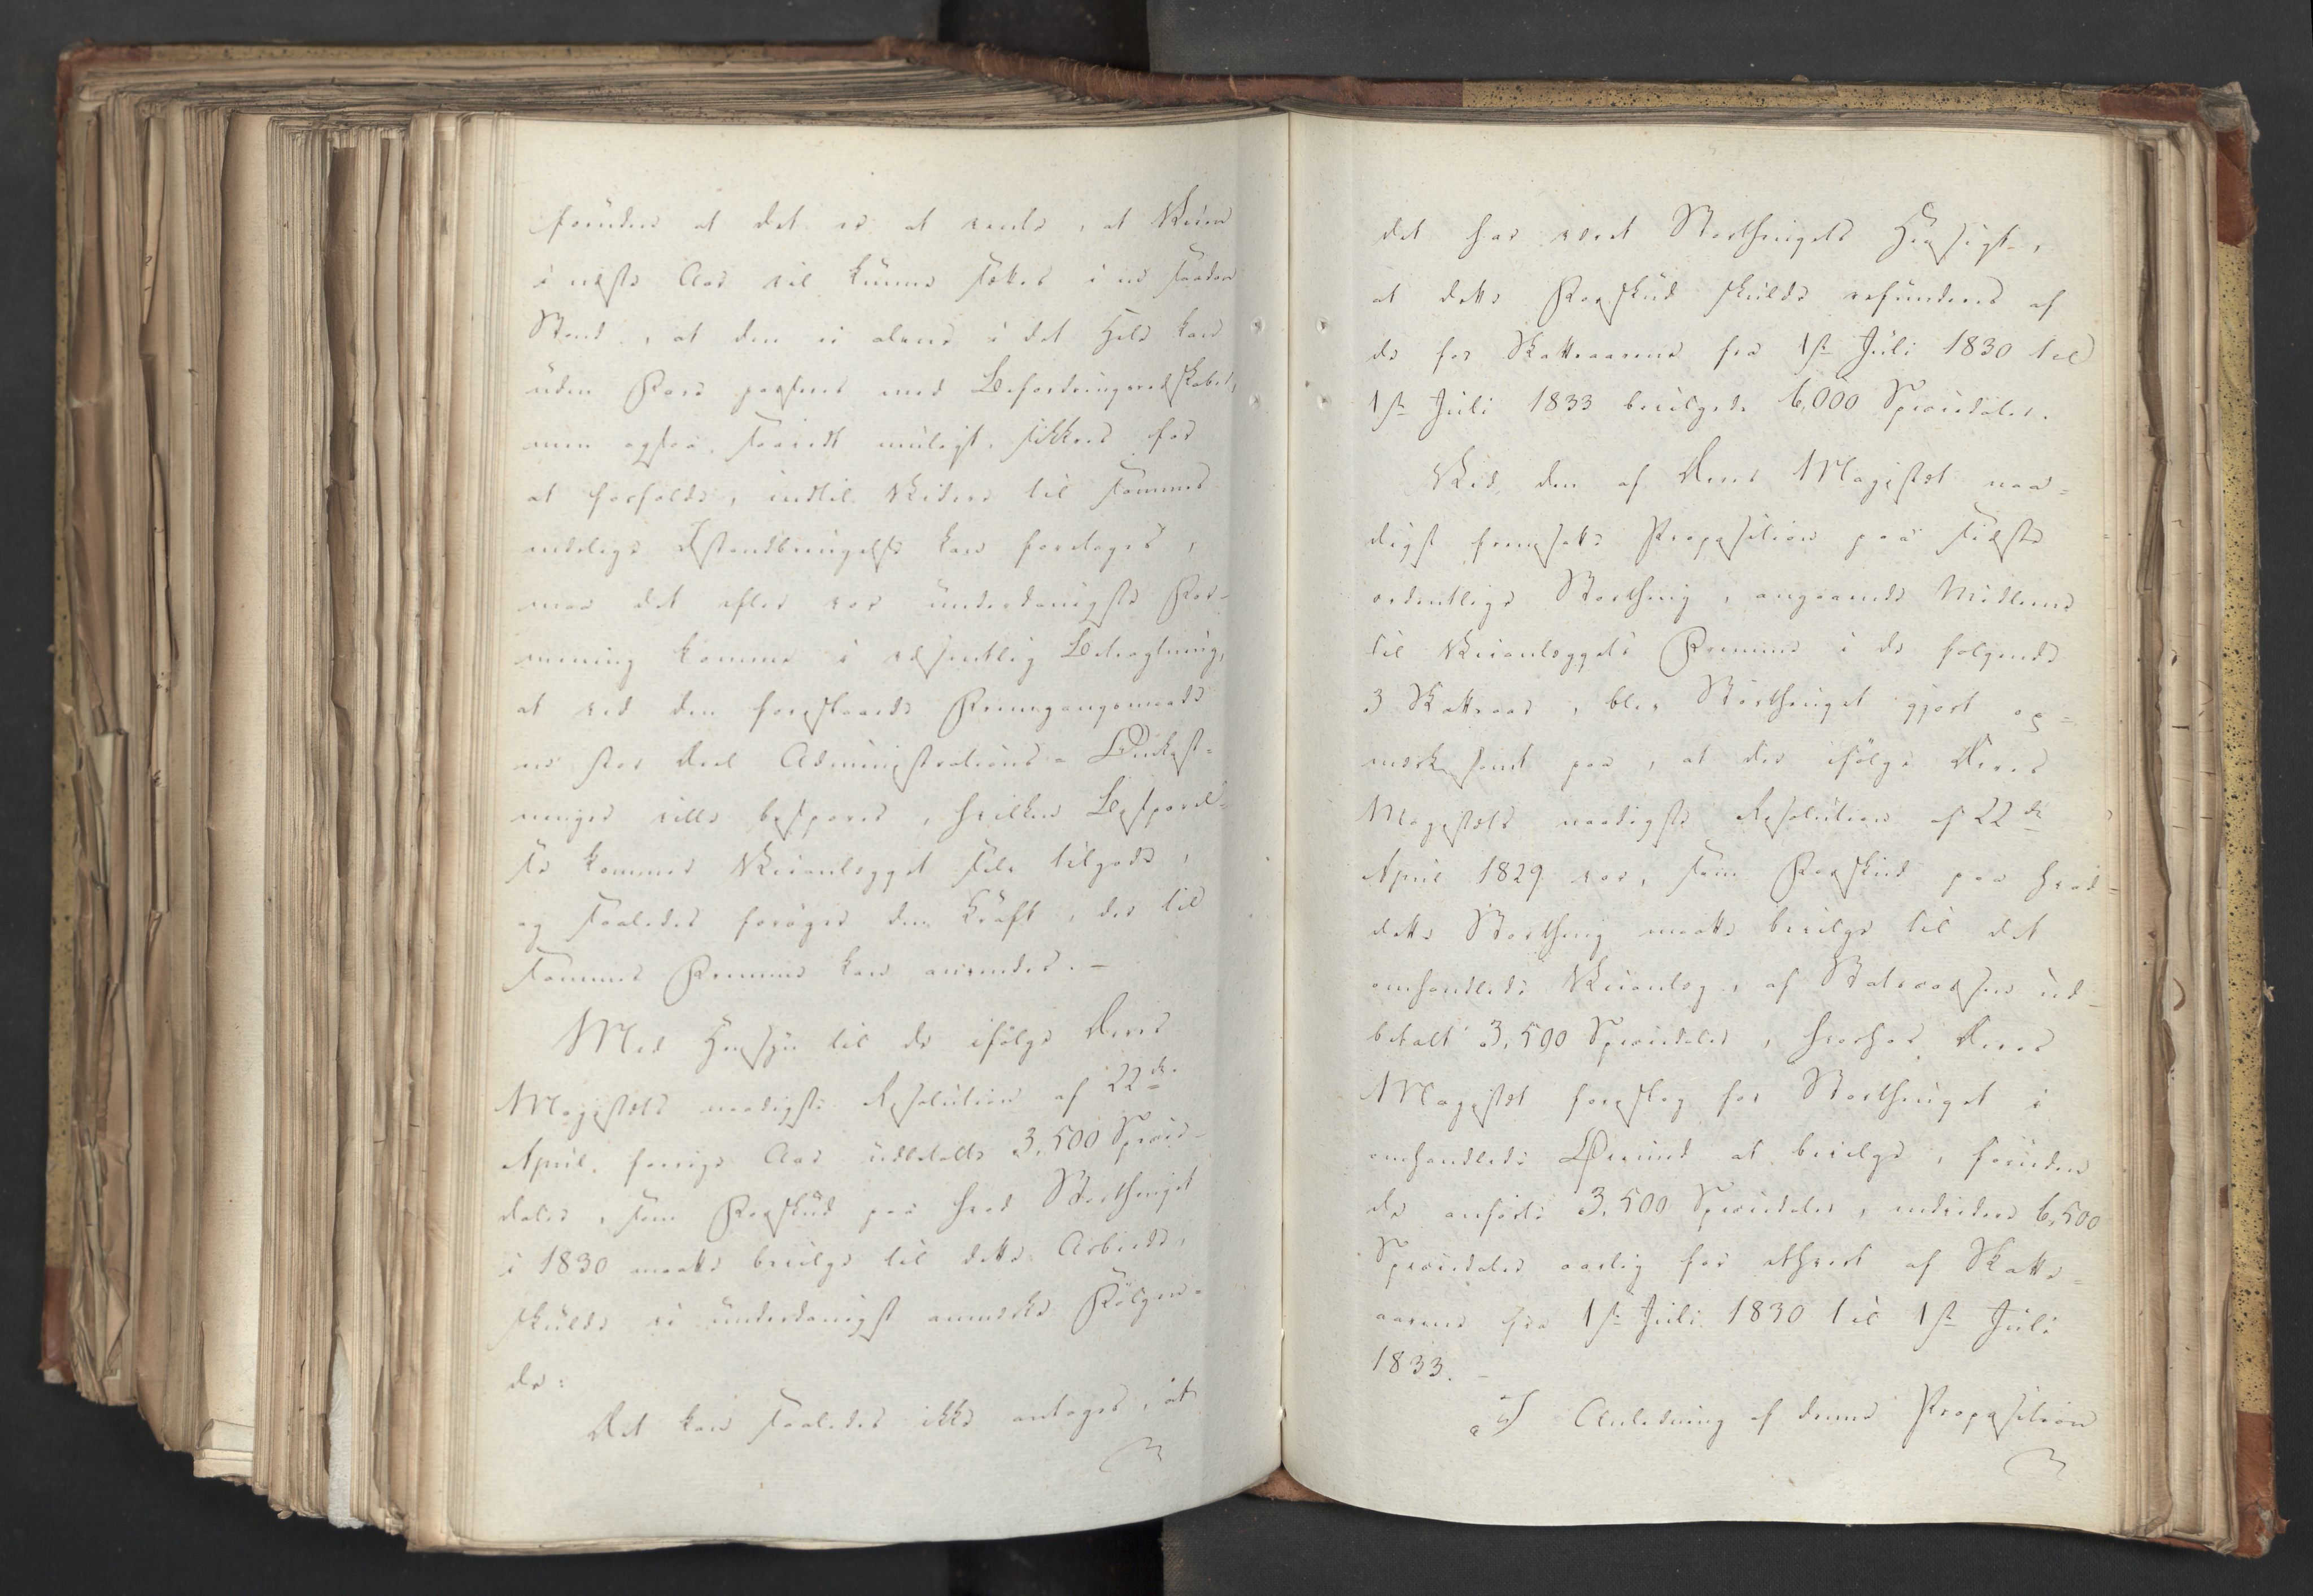 foruden at det er at vente, at Veien
i næste Aar vil kunne sættes i en saadan
Stand, at den ei alene i det Hele kan
uden Fare passeres med Befordringsredskaber,
men ogsaa saavidt muligt sikkres for
at forfalde, indtil Videre til sammes
endelige Istandbringelse kan foretages,
maa det efter vor underdanigste For-
mening komme i væsentlig Betragtning,
at ved den foreslaaede Fremgangsmaade
en stor Deel Administrations-Omkost-
ninger ville bespares, hvilken Besparel-
se kommer Veianlægget selv tilgode,
og saaledes forøger den Kraft, der til
sammes Fremme kan anvendes. -
Med Hensyn til de ifølge Deres
Majestæts naadigste Resolution af 22de
April forrige Aar udbetalte 3,500 Specie-
daler, som Forskud paa hvad Storthinget
i 1830 maatte bevilge til dette Arbeide,
skulde vi underdanigst anmærke Følgen-
de:
Det kan saaledes ikke antages, at
det har været Storthingets Hensigt,
at dette Forskud skulde refunderes af
de for Skatteaarene fra 1ste Juli 1830 til
1ste Juli 1833 bevilgede 6,000 Speciedaler.
Ved den af Deres Majestæt naa-
digst fremsatte Proposition paa sidste
ordentlige Storthing, angaaende Midlerne
til Veianlæggets Fremme i de følgende
3 Skatteaar, blev Storthinget gjort op-
mærksomt paa, at der ifølge Deres
Majestæts naadigste Resolution af 22de
April 1829 var, som Forskud paa hvad
dette Storthing maatte bevilge til det
omhandlede Veianlæg, af Statscassen ud-
betalt 3,500 Speciedaler, hvorhos Deres
Majestæt foreslog for Storthinget i
omhandlede Øiemed at bevilge, foruden
de anførte 3,500 Speciedaler, endvidere 6,500
Speciedaler aarlig for ethvert af Skatte-
aarene fra 1ste Juli 1830 til 1ste Juli
1833. -
I Anledning af denne Proposition